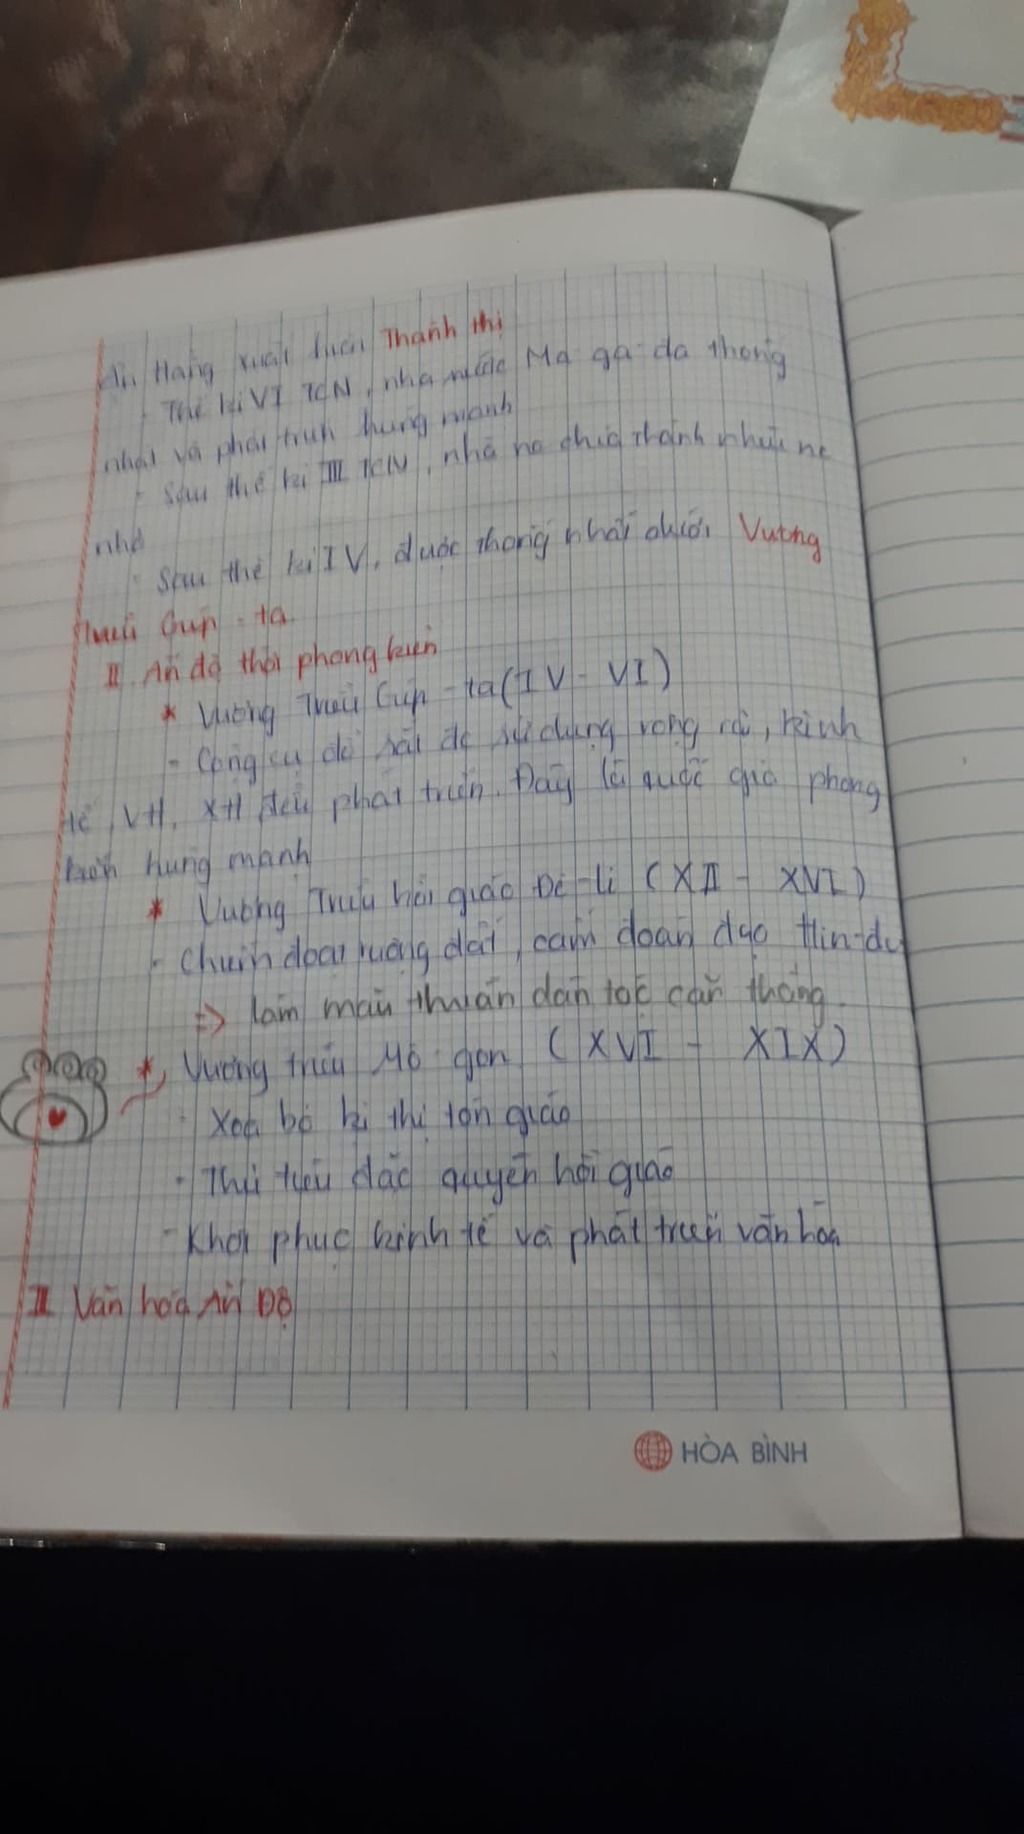 sông Hằng xuất hiện Thành thị
- Thế kỉ VI TCN, nhà nước Ma-ga-da thống
nhất và phát triển hùng mạnh
- Sau thế kỉ III TCN, nhà nc chia thành nhiều nc
nhỏ
- Sau thế kỉ IV, được thống nhất dưới Vương
triều Gúp-ta.
II. Ấn độ thời phong kiến
* Vương Triều Gúp-ta (IV - VI)
- Công cụ đồ sắt đc sử dụng rộng rãi, kinh
tế, VH, XH đều phát triển. Đây là quốc gia phong
kiến hưng mạnh
* Vương Triều hồi giáo Đê-li (XII - XVI)
- Chiếm đoạt ruộng đất, cấm đoán đạo Hin-du
=> làm mâu thuẫn dân tộc căn thẳng.
* Vương triều Mô-gôn (XVI - XIX)
- Xoá bỏ kì thị tôn giáo
- Thủ tiêu đặc quyền hồi giáo
- Khôi phục kinh tế và phát triển văn hóa
II Văn hóa Ấn Độ
HÒA BÌNH